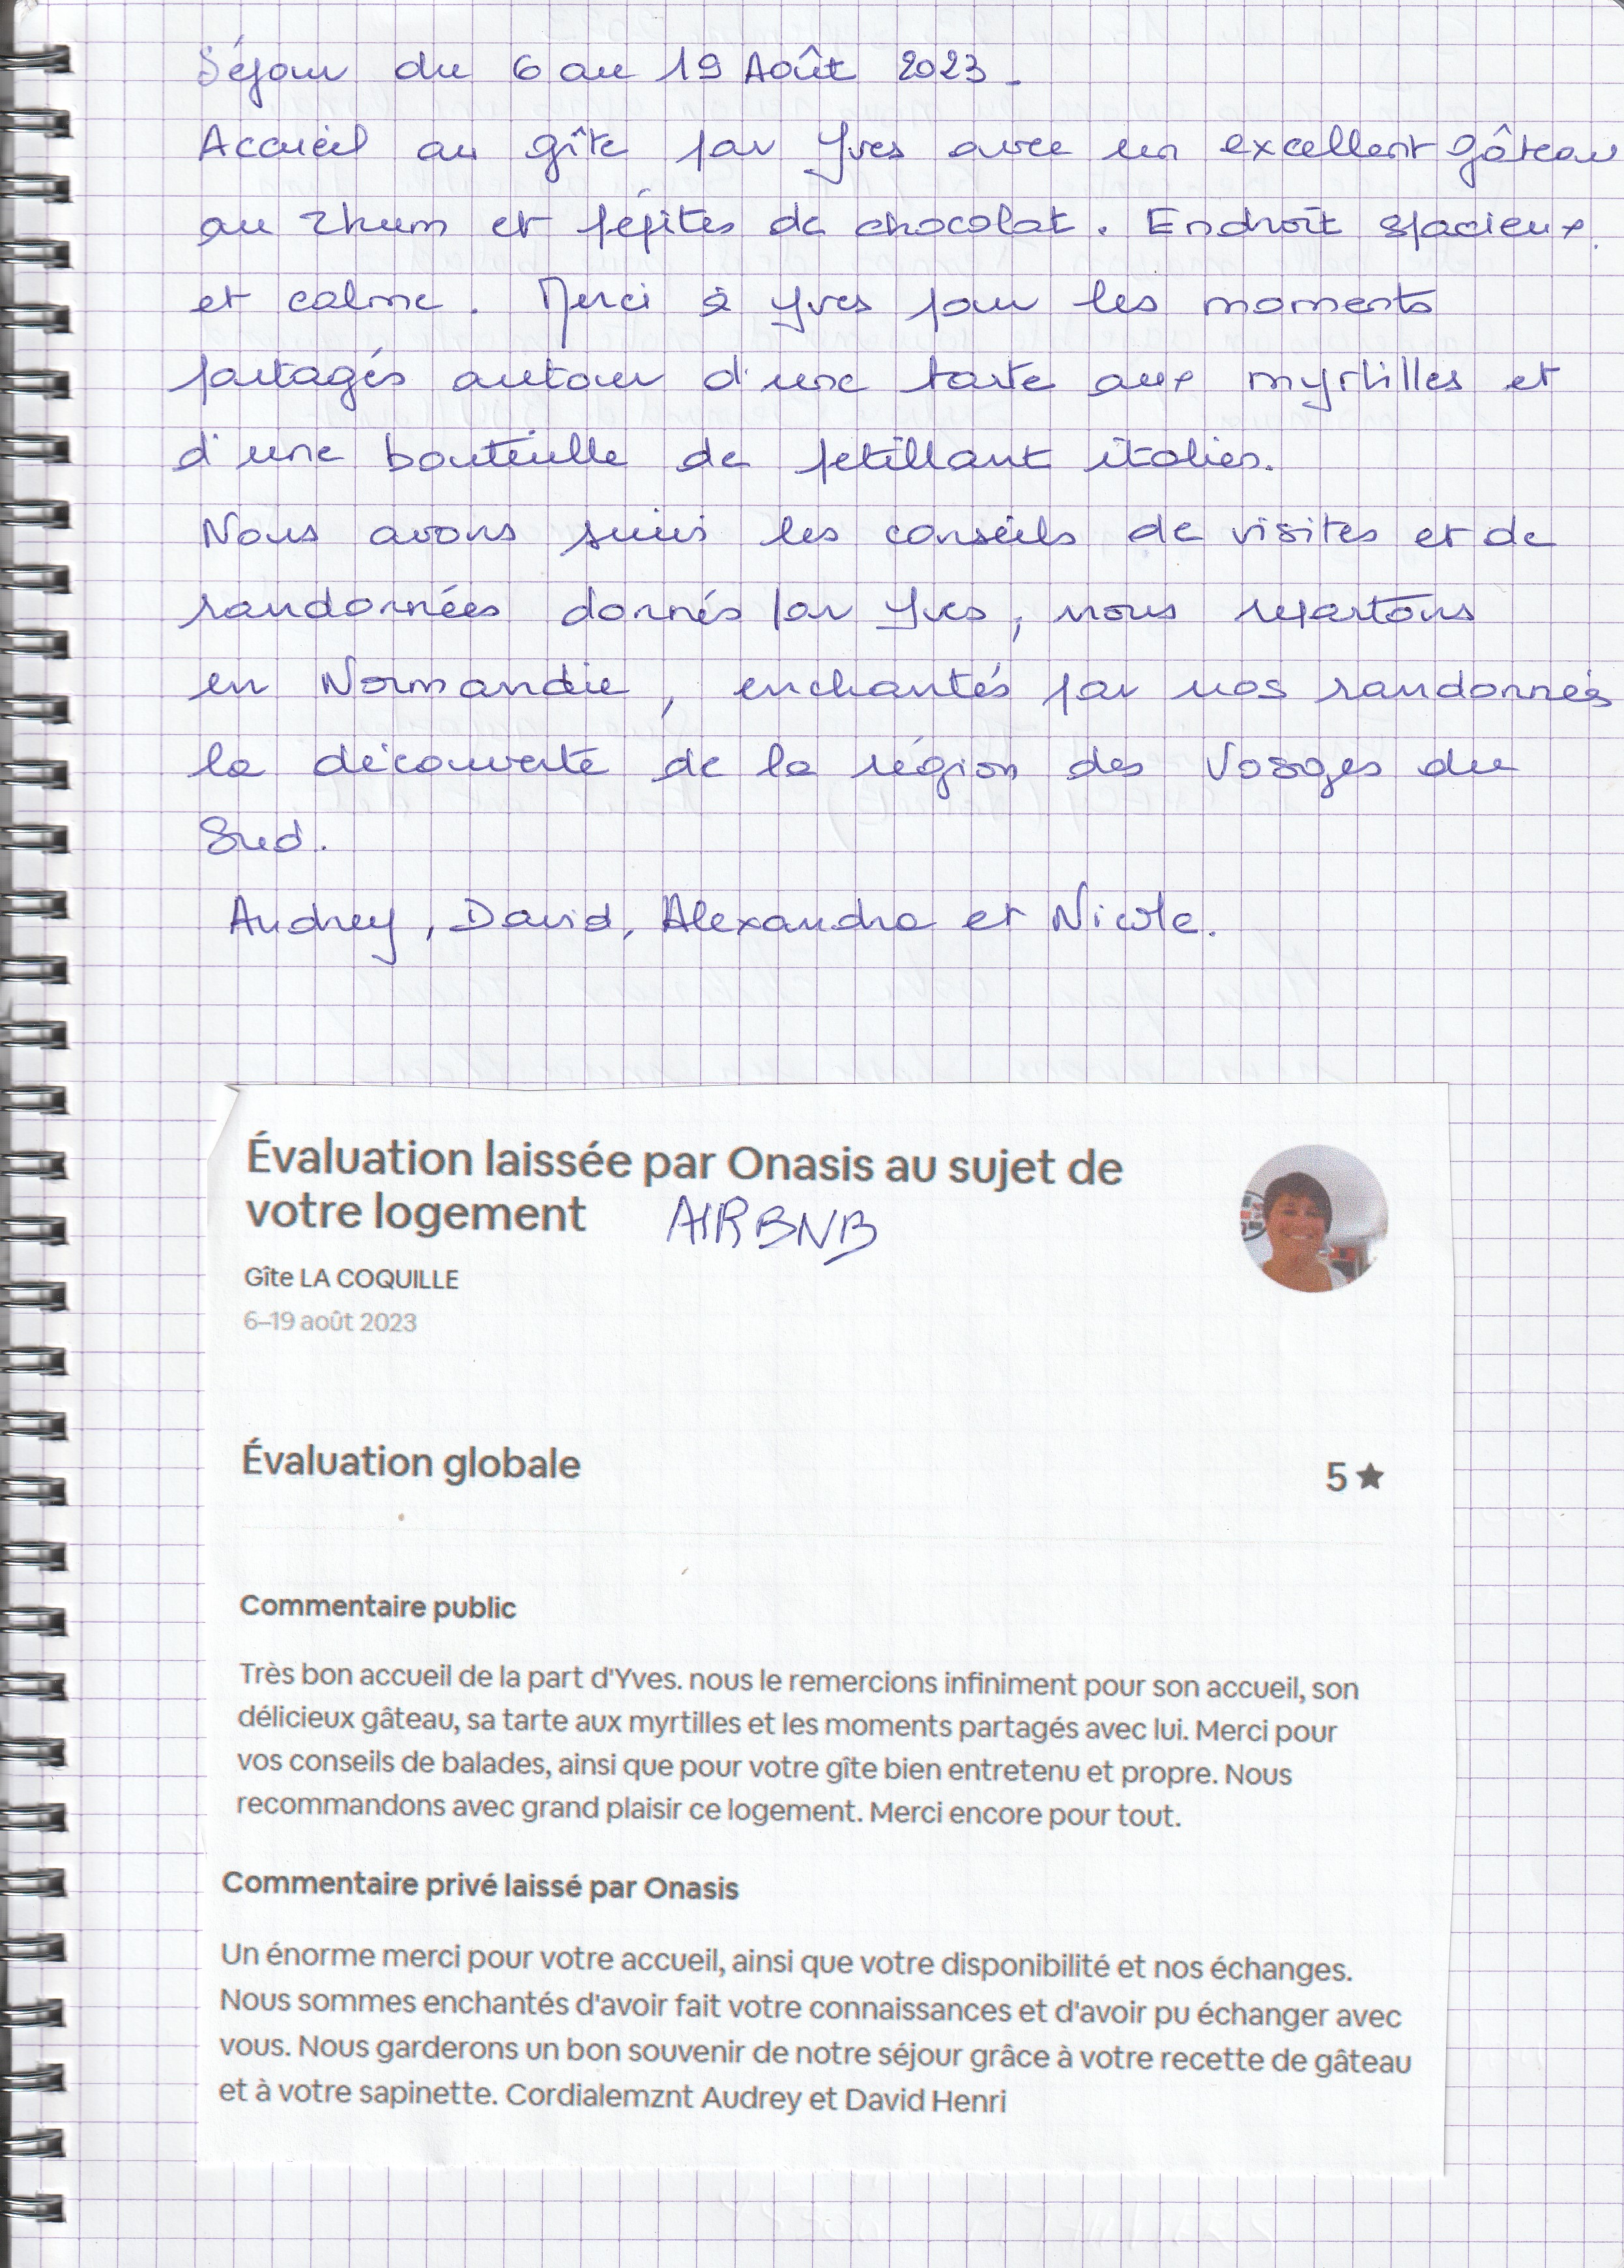 Séjour du 6 au 19 Août 2023_
Accueil au gîte par Yves avec un excellent gâteau
au rhum et pépites de chocolat. Endroit spacieux
et calme. Merci à Yves pour les moments
partagés autour d'une tarte aux myrtilles et
d'une bouteille de petillant italien.
Nous avons suivi les conseils de visites et de
randonnées donnés par Yves, nous repartons
en Normandie, enchantés par nos randonnées
la découverte de la région des Vosges du
Sud.
Audrey, David, Alexandra et Nicole.
Évaluation laissée par Onasis au sujet de
votre logement AIRBNB
Gîte LA COQUILLE
6–19 août 2023
Évaluation globale 5 ★
Commentaire public
Très bon accueil de la part d'Yves. nous le remercions infiniment pour son accueil, son
délicieux gâteau, sa tarte aux myrtilles et les moments partagés avec lui. Merci pour
vos conseils de balades, ainsi que pour votre gîte bien entretenu et propre. Nous
recommandons avec grand plaisir ce logement. Merci encore pour tout.
Commentaire privé laissé par Onasis
Un énorme merci pour votre accueil, ainsi que votre disponibilité et nos échanges.
Nous sommes enchantés d'avoir fait votre connaissances et d'avoir pu échanger avec
vous. Nous garderons un bon souvenir de notre séjour grâce à votre recette de gâteau
et à votre sapinette. Cordialemznt Audrey et David Henri